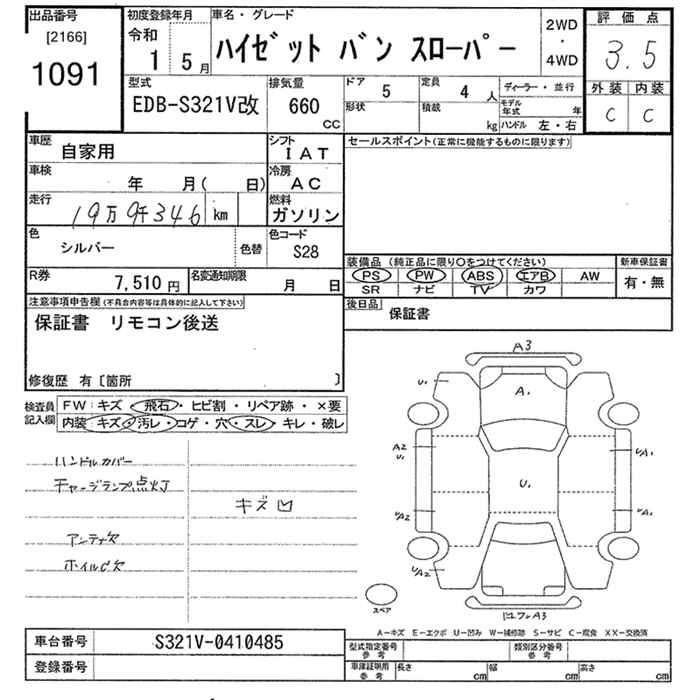 出品番号
[2166]
1091
初度登録年月
令和
1 5月
車名・グレード
ハイゼット バン スローパー
2WD
・
4WD
評価点
3.5
外装 内装
C C
型式
EDB-S321V改
排気量
660
CC
ドア 5
形状
定員 4 人
積載 kg
ディーラー・並行
モデル年式 年
ハンドル 左・右
車歴 自家用
シフト IAT
車検 年 月( 日)
冷房 AC
走行 19万9千346 km
燃料 ガソリン
色 シルバー 色替
色コード S28
R券 7,510円
名変通知期限 月 日
セールスポイント(正常に機能するものに限ります)
装備品 (純正品に限り○をつけてください)
PS PW ABS エアB AW
SR ナビ TV カワ
新車保証書
有・無
後日品 保証書
注意事項申告欄(不具合内容等は具体的に記入して下さい)
保証書 リモコン後送
修復歴 有〔箇所 〕
検査員記入欄
FW:キズ・飛石・ヒビ割・リペア跡・×要
内装:キズ・汚レ・コゲ・穴・スレ・キレ・破レ
ハンドルカバー
チャージランプ点灯
キズ 凹
アンテナ欠
ホイルC欠
A3
U1
A1
A2
U1
UA1
U1
UA2
UA1
UA2
スペア
A-キズ E-エクボ U-凹み W-補修跡 S-サビ C-腐食 XX-交換済
車台番号 S321V-0410485
登録番号
型式指定番号
参考
類別区分番号
参考
車庫証明用
参考
長さ cm
幅 cm
高さ cm